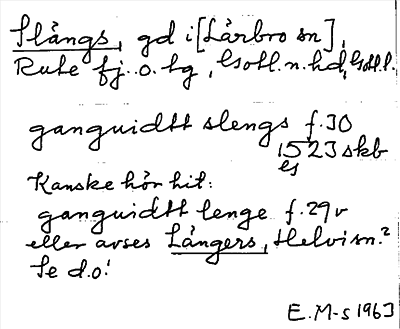 Slängs, gd i [Lärbro sn],
Rute fj. o. tg, Gotl. n. hd, Gotl. l.
ganguidtt slengs f. 30
1523 skb
es
Kanske hör hit:
ganguidtt lenge f. 29v
eller avses Längers, Helvi sn.?
Se d.o!
E. M-s 1963